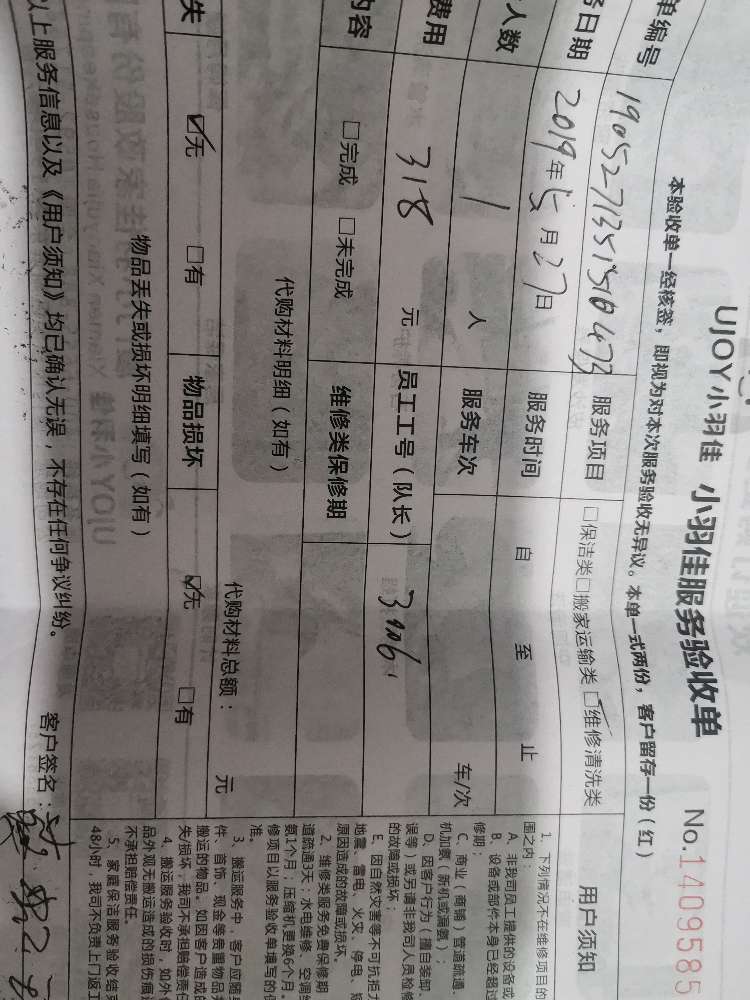 UJOY小羽佳 小羽佳服务验收单 No.1409585
本验收单一经核签，即视为对本次服务验收无异议。本单一式两份，客户留存一份（红）
单编号 服务项目 □保洁类□搬家运输类☑维修清洗类
日期 2019年5月27日 服务时间 自 至 止
人数 1 人 服务车次 车/次
费用 318 元 员工工号（队长） 3006
内容 □完成 □未完成 维修类保修期
代购材料明细（如有） 代购材料总额： 元
失 ☑无 □有 物品损坏 ☑无 □有
物品丢失或损坏明细填写（如有）
以上服务信息以及《用户须知》均已确认无误，不存在任何争议纠纷。 客户签名：
用户须知
1、下列情况不在维修项目的
围之内：
A、非我司员工提供的设备或
B、设备或部件本身已经超过
修期；
C、商业（商铺）管道疏通、
机加氨（新机或漏氨）；
D、因客户行为（擅自装卸、
误等）或另请非我司人员检修
的故障或损坏；
E、因自然灾害等不可抗拒力
地震、雷电、火灾、停电、
原因造成的故障或损坏。
2、维修类服务免费保修期
道疏通3天；水电维修、空调
氨1个月；压缩机更换6个月。
修项目以服务验收单填写的保
准。
3、搬运服务中，客户应随
件、首饰、现金等贵重物品
搬运的物品。如因客户造成的
失/损坏，我司不承担赔偿责任
4、搬运服务验收时，如外
品外观无搬运造成的损伤痕迹
不承担赔偿责任。
5、家庭保洁服务验收结束
48小时，我司不负责上门返工